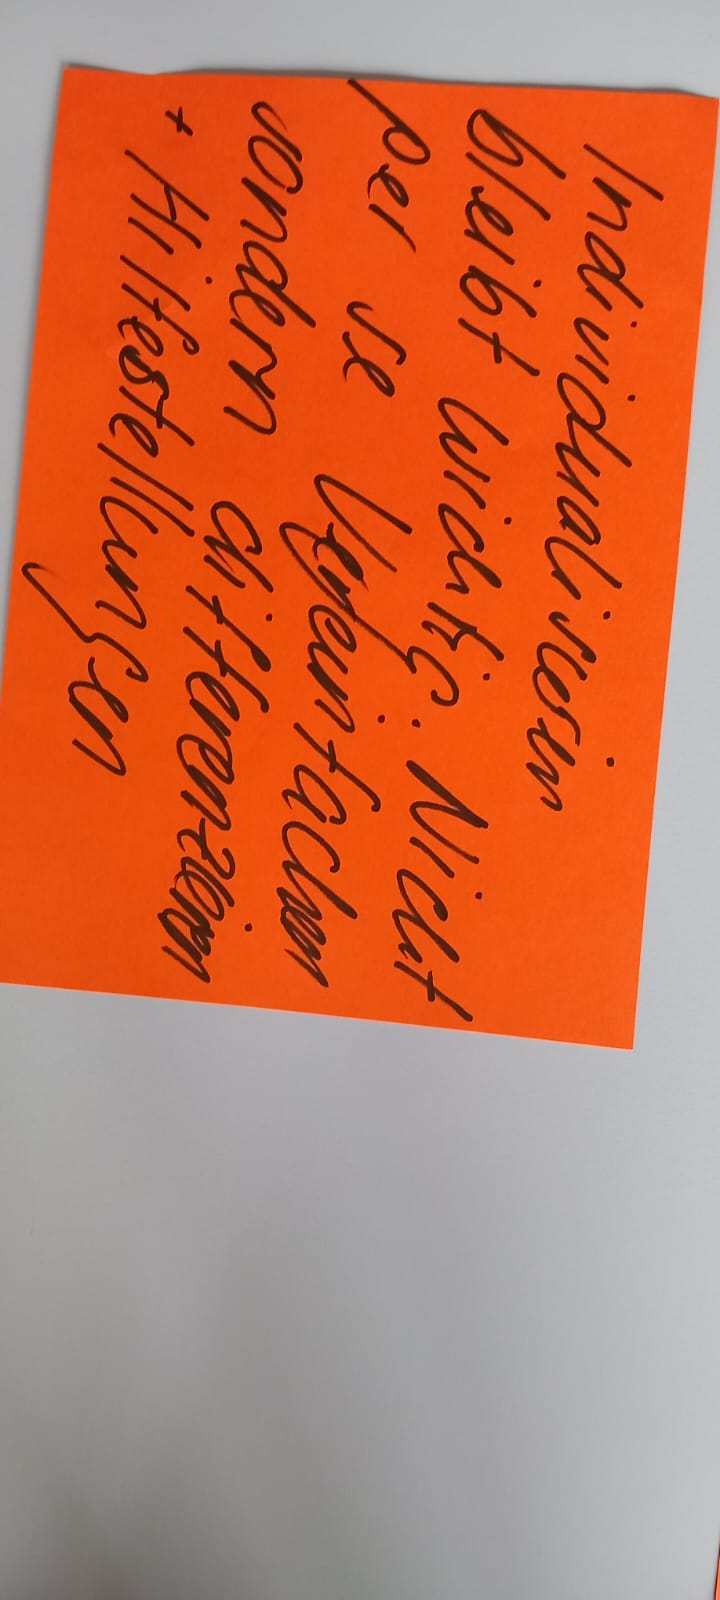 Individualisiern
bleibt wichtig. Nicht
per se Vereinfachen
sondern differenziern
+ Hilfestellungen